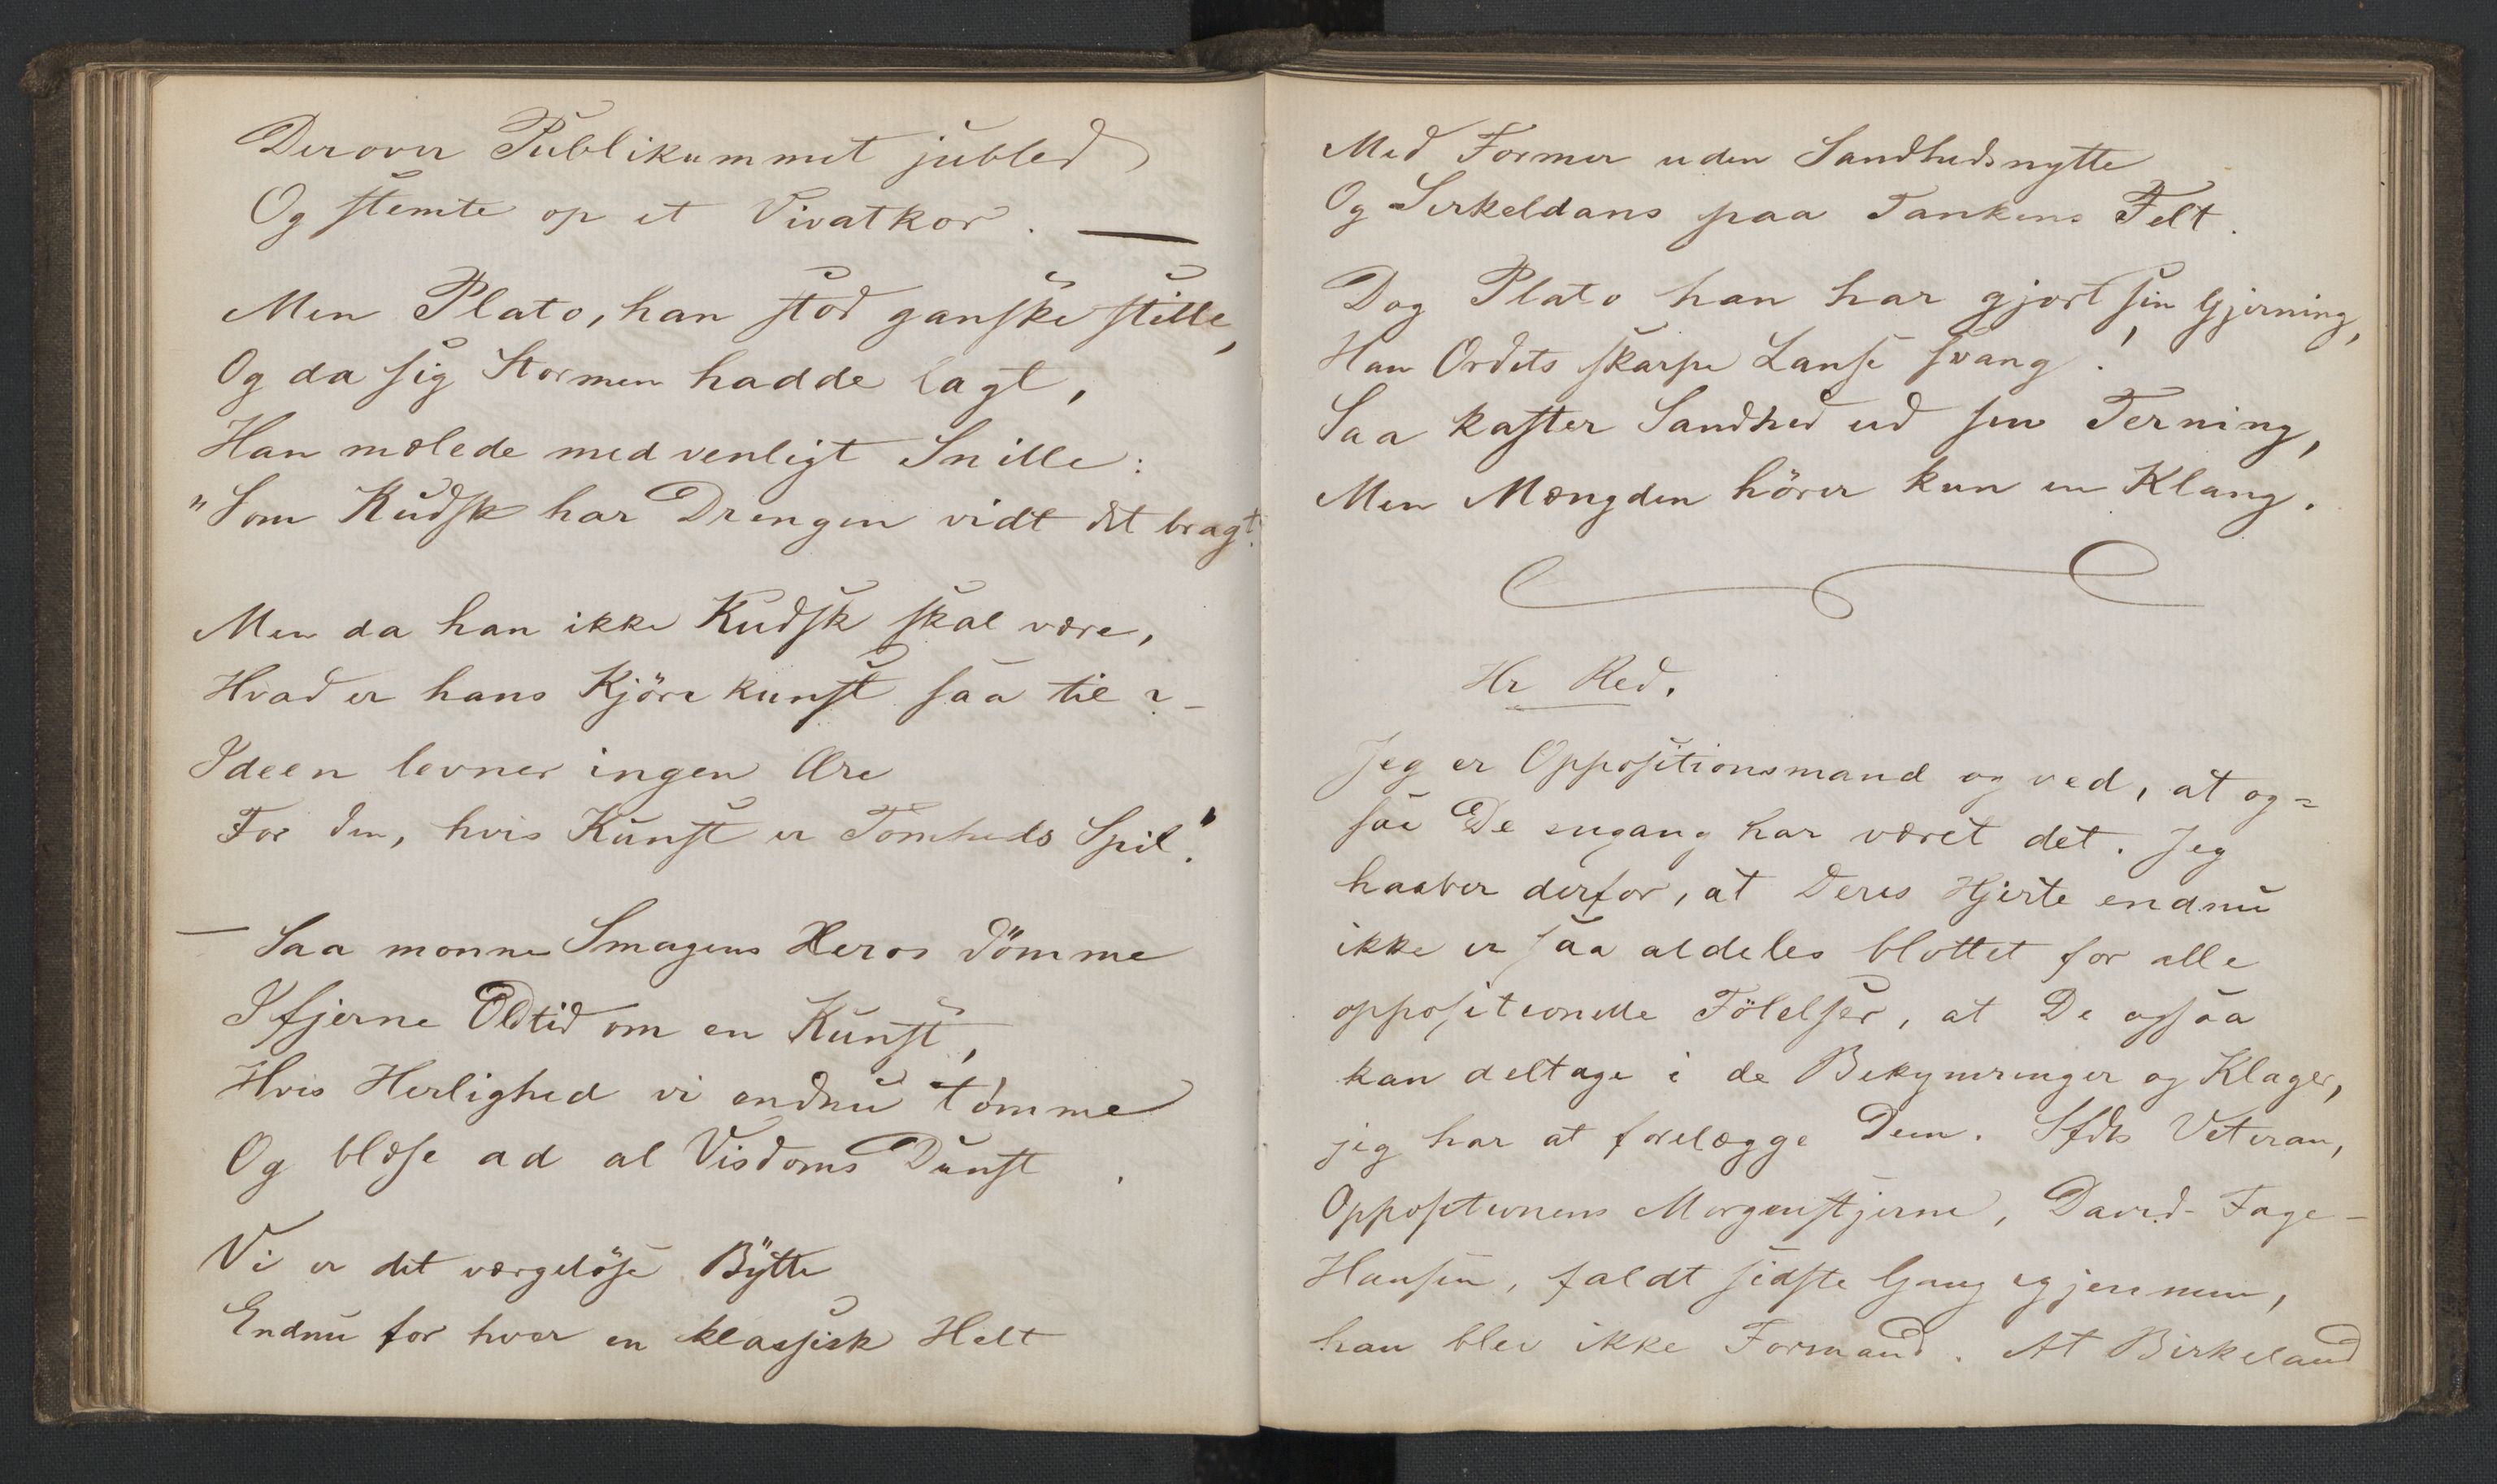 Derover Publikummet jubled
Og stemte op et Vivatkor. —
Men Plato, han stod ganske stille,
Og da sig Stormen hadde lagt,
Han mælede med venligt Snille:
"Som Kudsk har Drengen vidt det bragt.
Men da han ikke Kudsk skal være,
Hvad er hans Kjörekunst saa til? –
Ideen levner ingen Ære
For den, hvis Kunst er Tomheds Spil."
— Saa monne Smagens Heros dömme
I fjerne Oldtid om en Kunst,
Hvis Herlighed vi endnu tömme
Og blæse ad al Visdoms Dunst.
Vi er det værgelöse Bytte
Endnu for hver en klassisk Helt
Med Former uden Sandhedsnytte
Og Serkeldans paa Tankens Felt.
Dog Plato han har gjort sin Gjerning,
Han Ordets skarpe Lanse svang!
Saa kaster Sandhed ud sin Terning,
Men Mængden hörer kun en Klang.
Hr Red.
Jeg er Oppositionsmand og ved, at og=
saa De engang har været det. Jeg
haaber derfor, at Deres Hjerte endnu
ikke er saa aldeles blottet for alle
oppositionelle Fölelser, at De ogsaa
kan deltage i de Bekymringer og Klager,
jeg har at forelægge Dem. Sfdts Veteran,
Oppositionens Morgenstjerne, David Fage-
Hansen, faldt sidste Gang igjennem,
han blev ikke Formand. At Birkeland